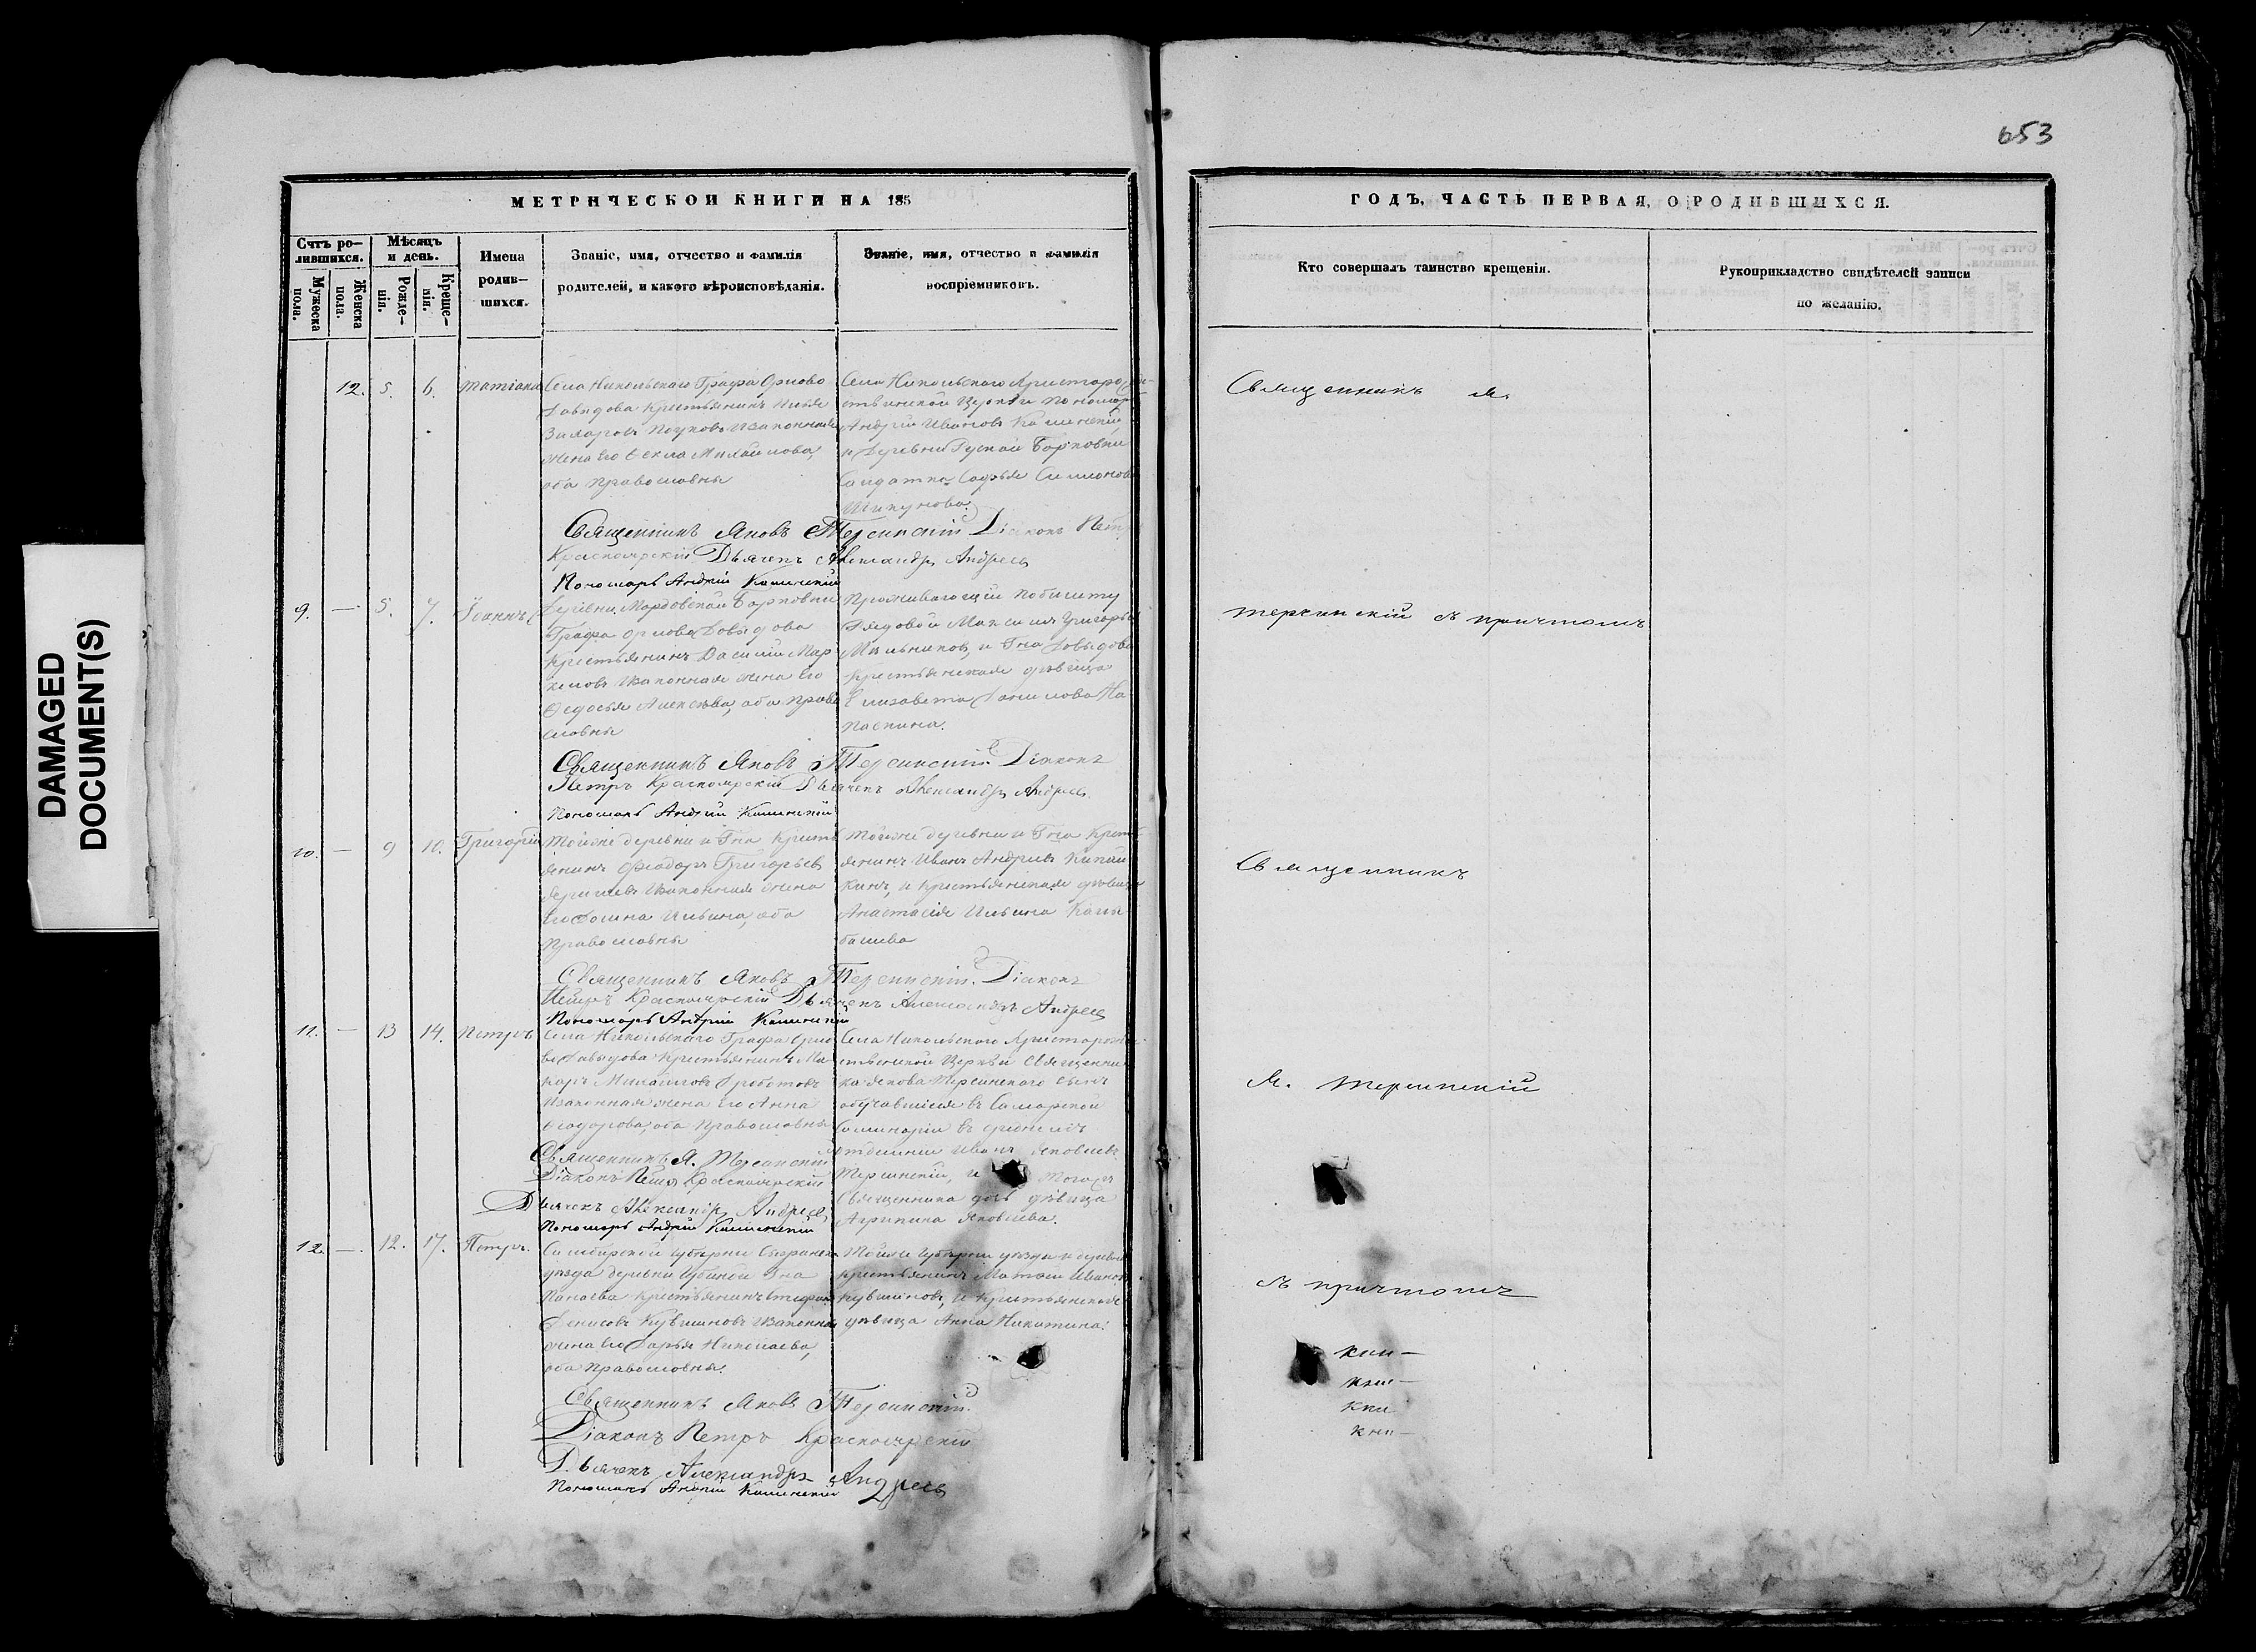 653
DAMAGED
DOCUMENT(S)
МЕТРИЧЕСКОЙ КНИГИ НА 185
ГОДЪ, ЧАСТЬ ПЕРВАЯ, О РОДИВШИХСЯ.
Счтъ ро-
дившихся.
Мужеска
пола.
Женска
пола.
Мѣсяцъ
и день.
Рожде-
нія.
Креще-
нія.
Имена
родив-
шихся.
Званіе, имя, отчество и фамилія
родителей, и какого вѣроисповѣданія.
Званіе, имя, отчество и фамилія
воспріемниковъ.
Кто совершалъ таинство крещенія.
Рукоприкладство свидѣтелей записи
по желанію.
12. 5. 6.
Села Никольскаго Графа Орлова
Давыдова Крестьянинъ
Захаровъ изаконная
жена его Фекла Михайлова,
оба православны
Села Никольскаго Христорожде-
ственской Церкви Пономарь
Андрей Ивановъ Каменскій
и Деревни Борковки
Солдатка Софья Симонова
Священникъ Яковъ Терсинскій Діаконъ Петръ
Красноярскій Дьячекъ Александръ Андреевъ
Пономарь Андрей Каменскій
9. — 5. 7. Іоаннъ
Деревни Мордовской Борковки
Графа Орлова Давыдова
Крестьянинъ Василій Мар
келовъ изаконная жена его
Федосья Алексѣева, оба право
славны
Проживающій побилету
Рядовой Максимъ Григорьевъ
Мельниковъ, и Гна Довыдова
Крестьянская дѣвица
Елизавета Данилова
Священникъ Яковъ Терсинскій. Діаконъ
Петръ Красноярскій Дьячекъ Александръ Андреевъ
Пономарь Андрей Каменскій
10. — 9 10. Григорій
Тойже деревни и Гна Кресть
янинъ Феодоръ Григорьевъ
изаконная жена
его Ильина, оба
православны
Тойже деревни и Гна Кресть
янинъ Иванъ Андреевъ
и крестьянская дѣвица
Анастасія Ильина
Священникъ Яковъ Терсинскій. Діаконъ
Петръ Красноярскій Дьячекъ Александръ Андреевъ
Пономарь Андрей Каменскій
11. — 13 14. Петръ
Села Никольскаго Графа Орло
ва Давыдова Крестьянинъ Ма
каръ Михайловъ
изаконная жена его Анна
Феодорова, оба православны
Села Никольскаго Христорожде-
ственской Церкви Священни
ка Якова Терсинскаго сынъ
обучавшійся въ Самарской
Семинаріи въ среднемъ
отдѣленіи Иванъ Яковлевъ
Терсинскій, и тогожъ
Священника дочь дѣвица
Агрипина Яковлева.
Священникъ Я. Терсинскій
Діаконъ Петръ Красноярскій
Дьячекъ Александръ Андреевъ
Пономарь Андрей Каменскій
12. — 12. 17. Петръ.
Симбирской губерніи Сызранска
уѣзда деревни Губиной Гна
Крестьянинъ Стефанъ
Денисовъ Кувшиновъ изаконная
жена его Дарья Николаева,
оба православны.
Тойже губерніи уѣзда и деревни
крестьянинъ Матвей Ивановъ
Кувшиновъ, и крестьянская
дѣвица Анна Никитина.
Священникъ Яковъ Терсинскій.
Діаконъ Петръ Красноярскій
Дьячекъ Александръ Андреевъ
Пономарь Андрей Каменскій
Священникъ Я.
Терсинскій съ причтомъ
Священникъ
Я. Терсинскій
съ причтомъ